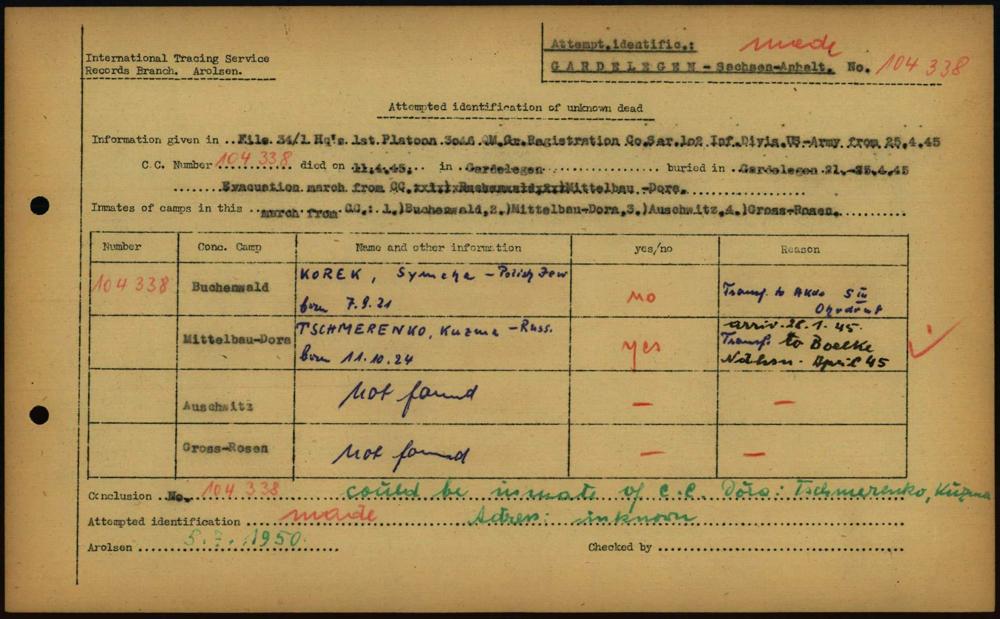 International Tracing Service
Records Branch. Arolsen.
Attempt.identific.: made
GARDELEGEN - Sachsen-Anhalt. No. 104338
Attempted identification of unknown dead
Information given in ..File 34/1 Hq's 1st.Platoon 3046 QM.Gr.Registration Co.Sar.102 Inf.Divis.US-Army from 25.4.45
C.C. Number 104338 died on 11.4.45. in Gardelegen buried in Gardelegen 21.-25.4.45
Evacuation march from CC. Mittelbau -Dora.
Inmates of camps in this march from CC.: 1.)Buchenwald,2.)Mittelbau-Dora,3.)Auschwitz,4.)Gross-Rosen.
Number Conc. Camp Name and other information yes/no Reason
104338 Buchenwald KOREK, Symcha - Polish Jew born 7.9.21 no Transf. to AKdo S III Ohrdruf
Mittelbau-Dora TSCHMERENKO, Kuzma - Russ. born 11.10.24 yes arriv. 28.1.45. Transf. to Boelke April 45
Auschwitz Not found — —
Gross-Rosen Not found — —
Conclusion No. 104338 could be inmate of C.C. Dora: Tschmerenko, Kuzma
Attempted identification made Adress: unknown
Arolsen 1950. Checked by